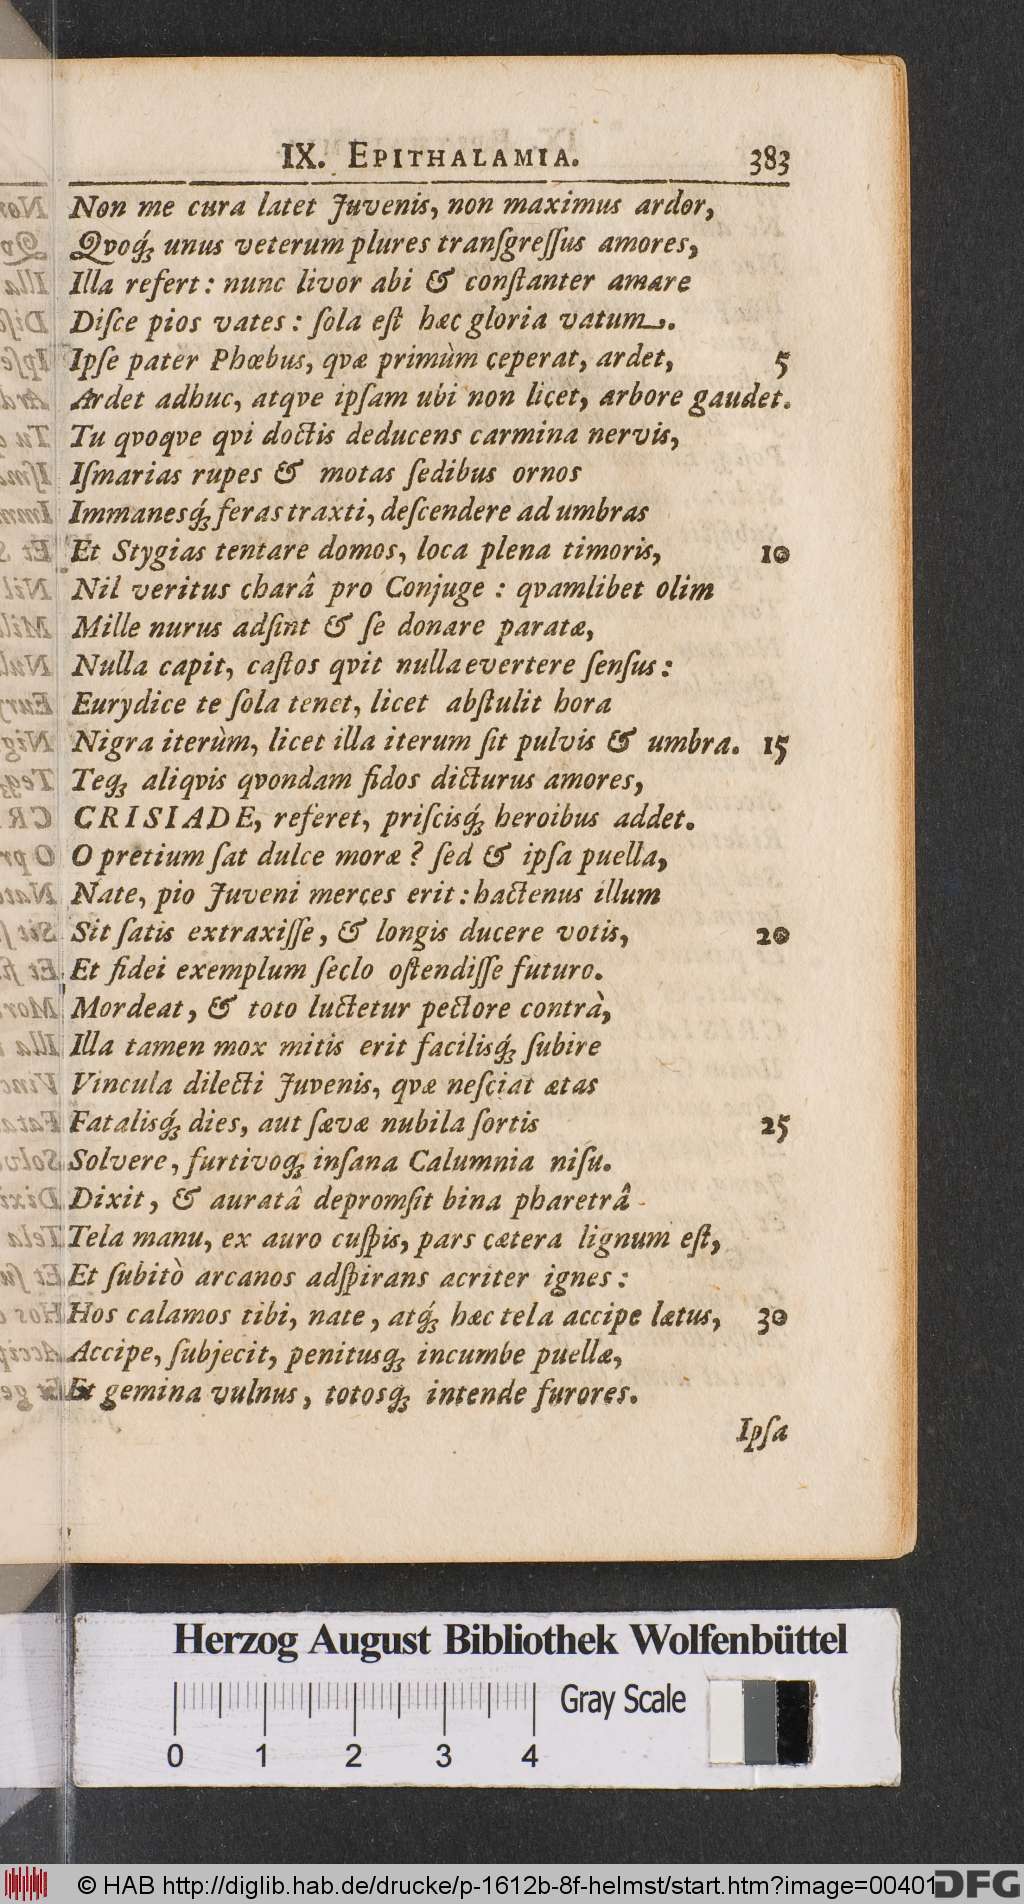 IX. EPITHALAMIA. 383
Non me cura latet Juvenis, non maximus ardor,
Qvoq́ꝫ unus veterum plures tranſgreſſus amores,
Illa refert: nunc livor abi & conſtanter amare
Diſce pios vates: ſola eſt hæc gloria vatum.
Ipſe pater Phœbus, qvæ primùm ceperat, ardet, 5
Ardet adhuc, atqve ipſam ubi non licet, arbore gaudet.
Tu qvoqve qvi doctis deducens carmina nervis,
Iſmarias rupes & motas ſedibus ornos
Immanesq́ꝫ feras traxti, deſcendere ad umbras
Et Stygias tentare domos, loca plena timoris, 10
Nil veritus charâ pro Conjuge: qvamlibet olim
Mille nurus adſint & ſe donare paratæ,
Nulla capit, caſtos qvit nulla evertere ſenſus:
Eurydice te ſola tenet, licet abſtulit hora
Nigra iterùm, licet illa iterum ſit pulvis & umbra. 15
Teqꝫ aliqvis qvondam fidos dicturus amores,
CRISIADE, referet, priſcisq́ꝫ heroibus addet.
O pretium ſat dulce moræ? ſed & ipſa puella,
Nate, pio Juveni merces erit: hactenus illum
Sit ſatis extraxiſſe, & longis ducere votis, 20
Et fidei exemplum ſeclo oſtendiſſe futuro.
Mordeat, & toto luctetur pectore contrà,
Illa tamen mox mitis erit facilisq́ꝫ ſubire
Vincula dilecti Juvenis, qvæ neſciat ætas
Fatalisq́ꝫ dies, aut ſævæ nubila ſortis 25
Solvere, furtivoqꝫ inſana Calumnia niſu.
Dixit, & auratâ depromſit bina pharetrâ
Tela manu, ex auro cuſpis, pars cætera lignum eſt,
Et ſubitò arcanos adſpirans acriter ignes:
Hos calamos tibi, nate, atq́ꝫ hæc tela accipe lætus, 30
Accipe, ſubjecit, penitusqꝫ incumbe puellæ,
Et gemina vulnus, totosqꝫ intende furores.
Ipſa
Herzog August Bibliothek Wolfenbüttel
Gray Scale
0 1 2 3 4
© HAB http://diglib.hab.de/drucke/p-1612b-8f-helmst/start.htm?image=00401
DFG